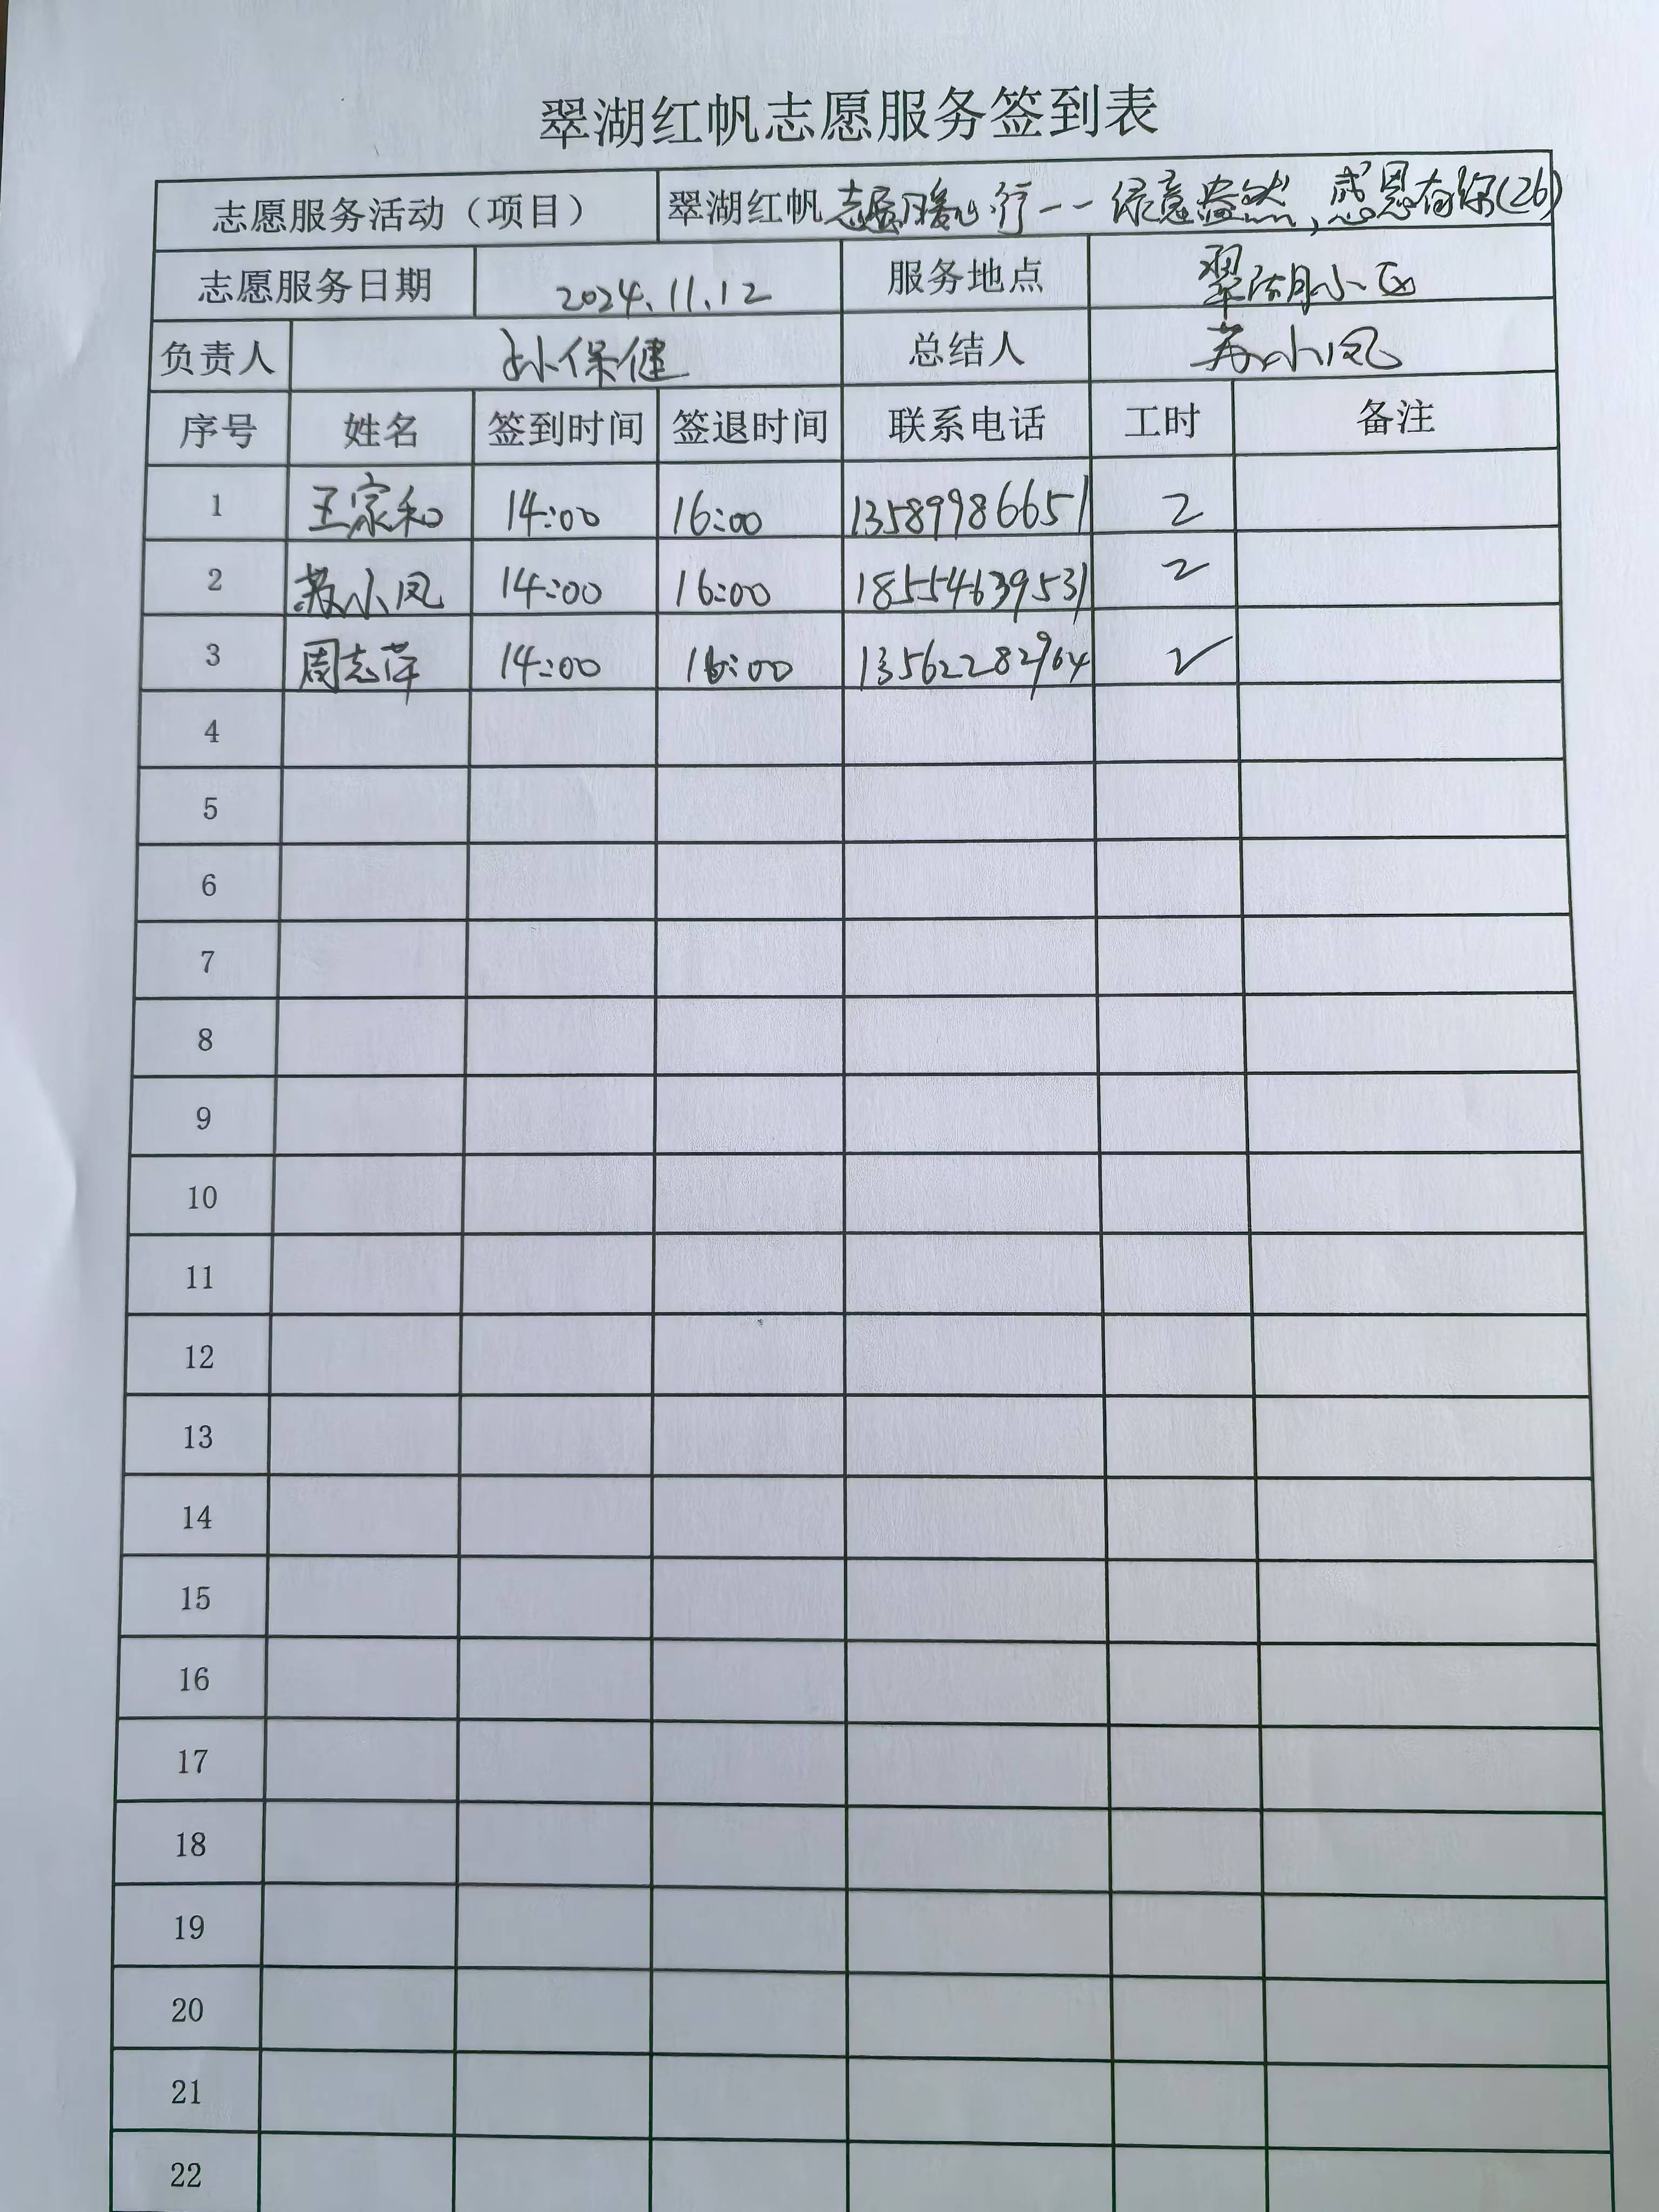 翠湖红帆志愿服务签到表
志愿服务活动（项目） 翠湖红帆志愿暖心行--绿意盎然,感恩有你(26)
志愿服务日期 2024.11.12 服务地点 翠湖小区
负责人 孙保健 总结人 苏小凤
序号 姓名 签到时间 签退时间 联系电话 工时 备注
1 王家和 14:00 16:00 13589986651 2
2 苏小凤 14:00 16:00 18554639531 2
3 周志萍 14:00 16:00 13562282964 2
4
5
6
7
8
9
10
11
12
13
14
15
16
17
18
19
20
21
22